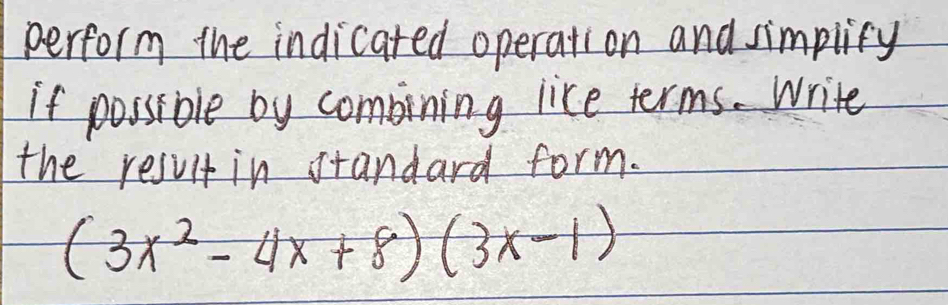 perform the indicated operation and simplify
if possible by combining like terms. Write
the result in standard form.
(3x² - 4x + 8)(3x - 1)